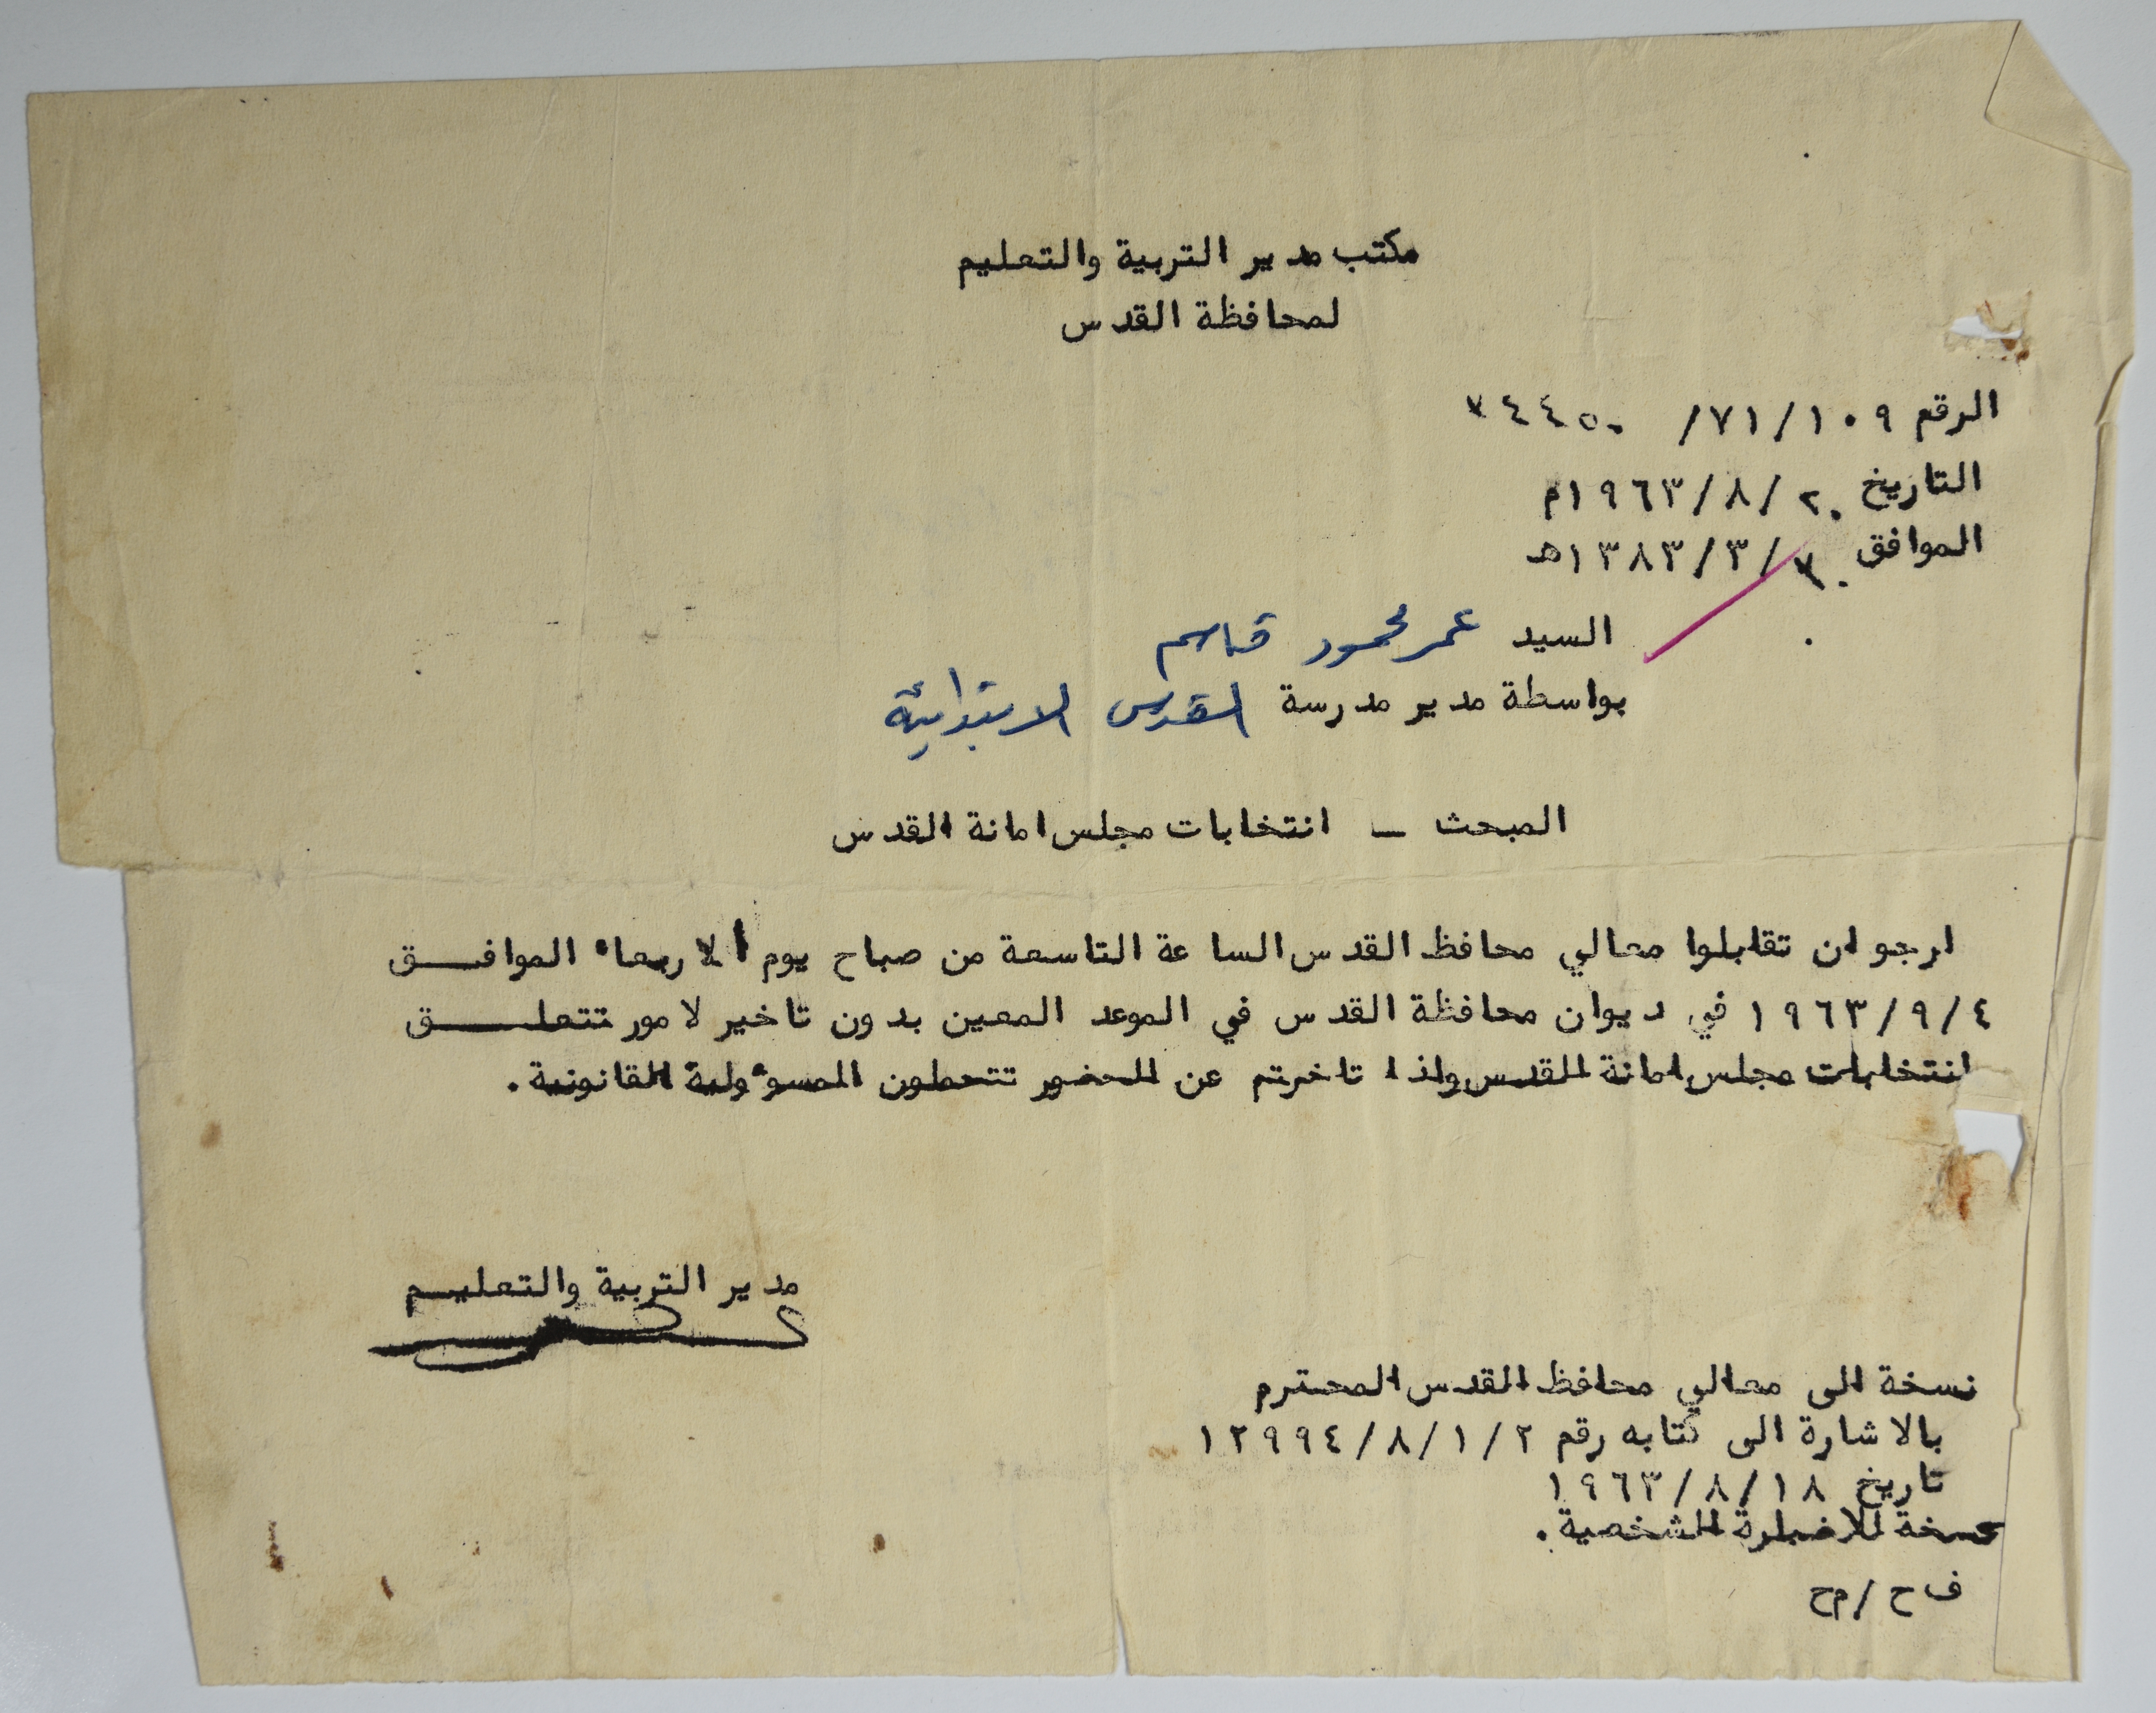 مكتب مدير التربية والتعليم
لمحافظة القدس
الرقم ١٠٩/٧١/ ٢٤٤٥٠
التاريخ ٢٠/٨/١٩٦٣م
الموافق ٣٠/٣/١٣٨٣هـ
السيد عمر محمود قاسم
بواسطة مدير مدرسة القدس الابتدائية
المبحث ـ انتخابات مجلس امانة القدس
ارجو ان تقابلوا معالي محافظ القدس الساعة التاسعة من صباح يوم الاربعاء الموافـــق
٤/٩/١٩٦٣ في ديوان محافظة القدس في الموعد المعين بدون تاخير لامور تتعلــــق
انتخابات مجلس امانة القدس واذا تاخرتم عن الحضور تتحملون المسوءولية القانونية.
مدير التربية والتعليــم
نسخة الى معالي محافظ القدس المحترم
بالاشارة الى كتابه رقم ٢/١/٨/١٢٩٩٤
تاريخ ١٨/٨/١٩٦٣
نسخة للاضبارة الشخصية.
ف ح/م ح